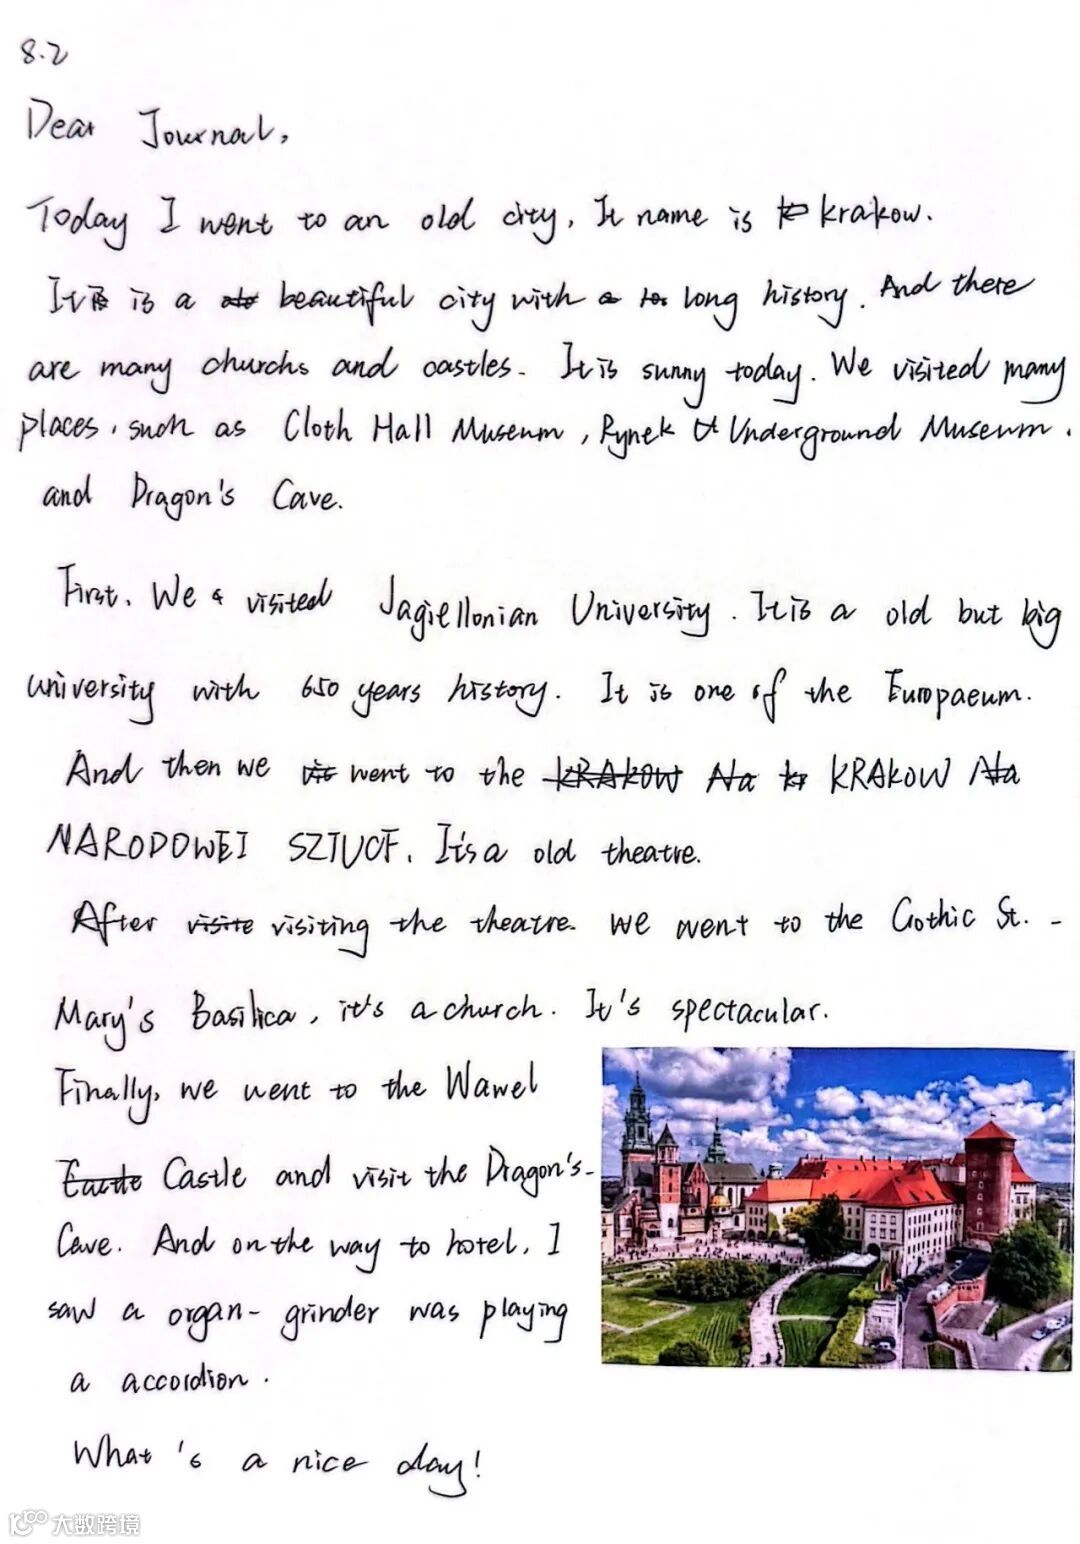 8.2
Dear Journal,
Today I went to an old city, It name is krakow.
It is a beautiful city with long history. And there
are many churchs and castles. It is sunny today. We visited many
places, such as Cloth Hall Museum, Rynek Underground Museum,
and Dragon's Cave.
First. We visited Jagiellonian University. It is a old but big
university with 650 years history. It is one of the Europaeum.
And then we went to the KRAKOW Na
NARODOWEI SZTUCE. It's a old theatre.
After visiting the theatre. we went to the Gothic St. -
Mary's Basilica, it's a church. It's spectacular.
Finally, we went to the Wawel
Castle and visit the Dragon's-
Cave. And on the way to hotel, I
saw a organ-grinder was playing
a accordion.
What's a nice day!
大数跨境